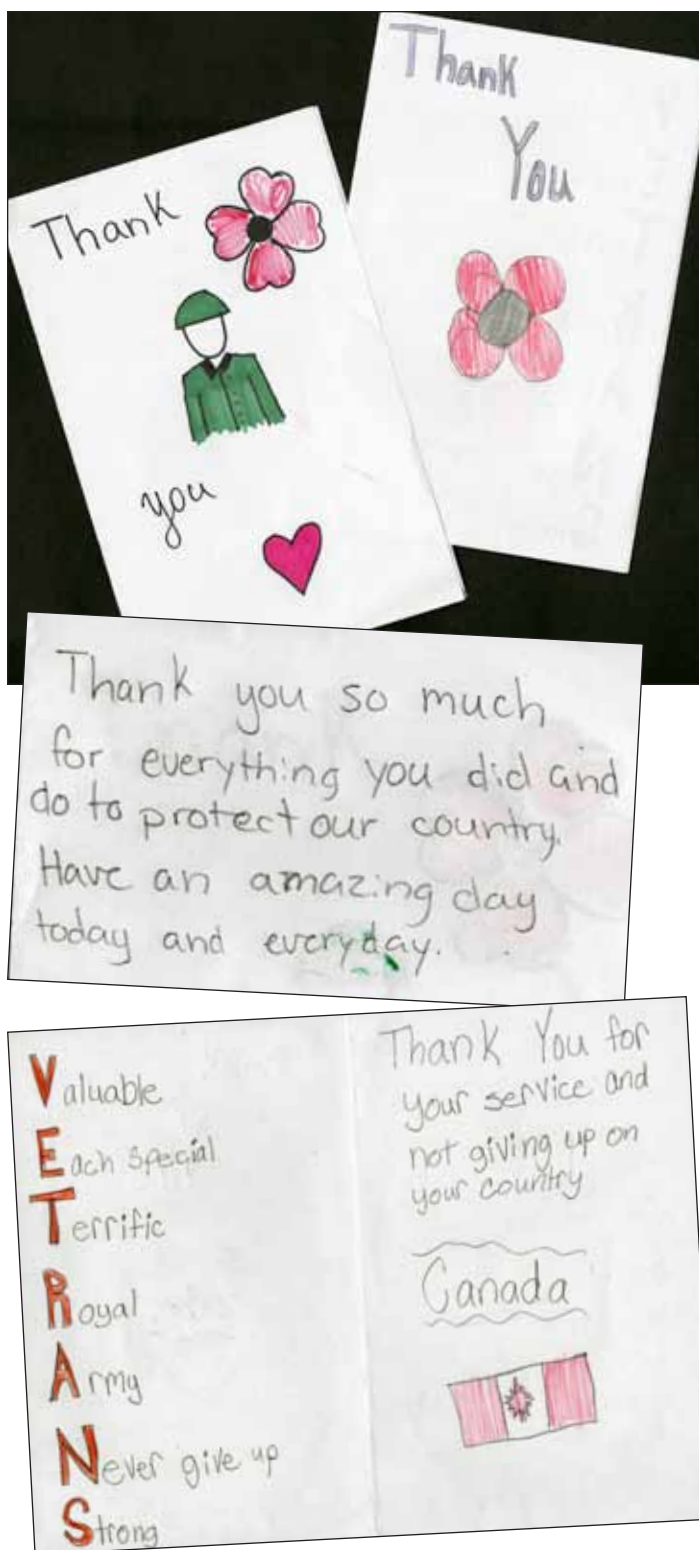 Thank
you
Thank
You
Thank you so much
for everything you did and
do to protect our country.
Have an amazing day
today and everyday.
Valuable
Each Special
Terrific
Royal
Army
Never give up
Strong
Thank You for
your service and
not giving up on
your country
Canada